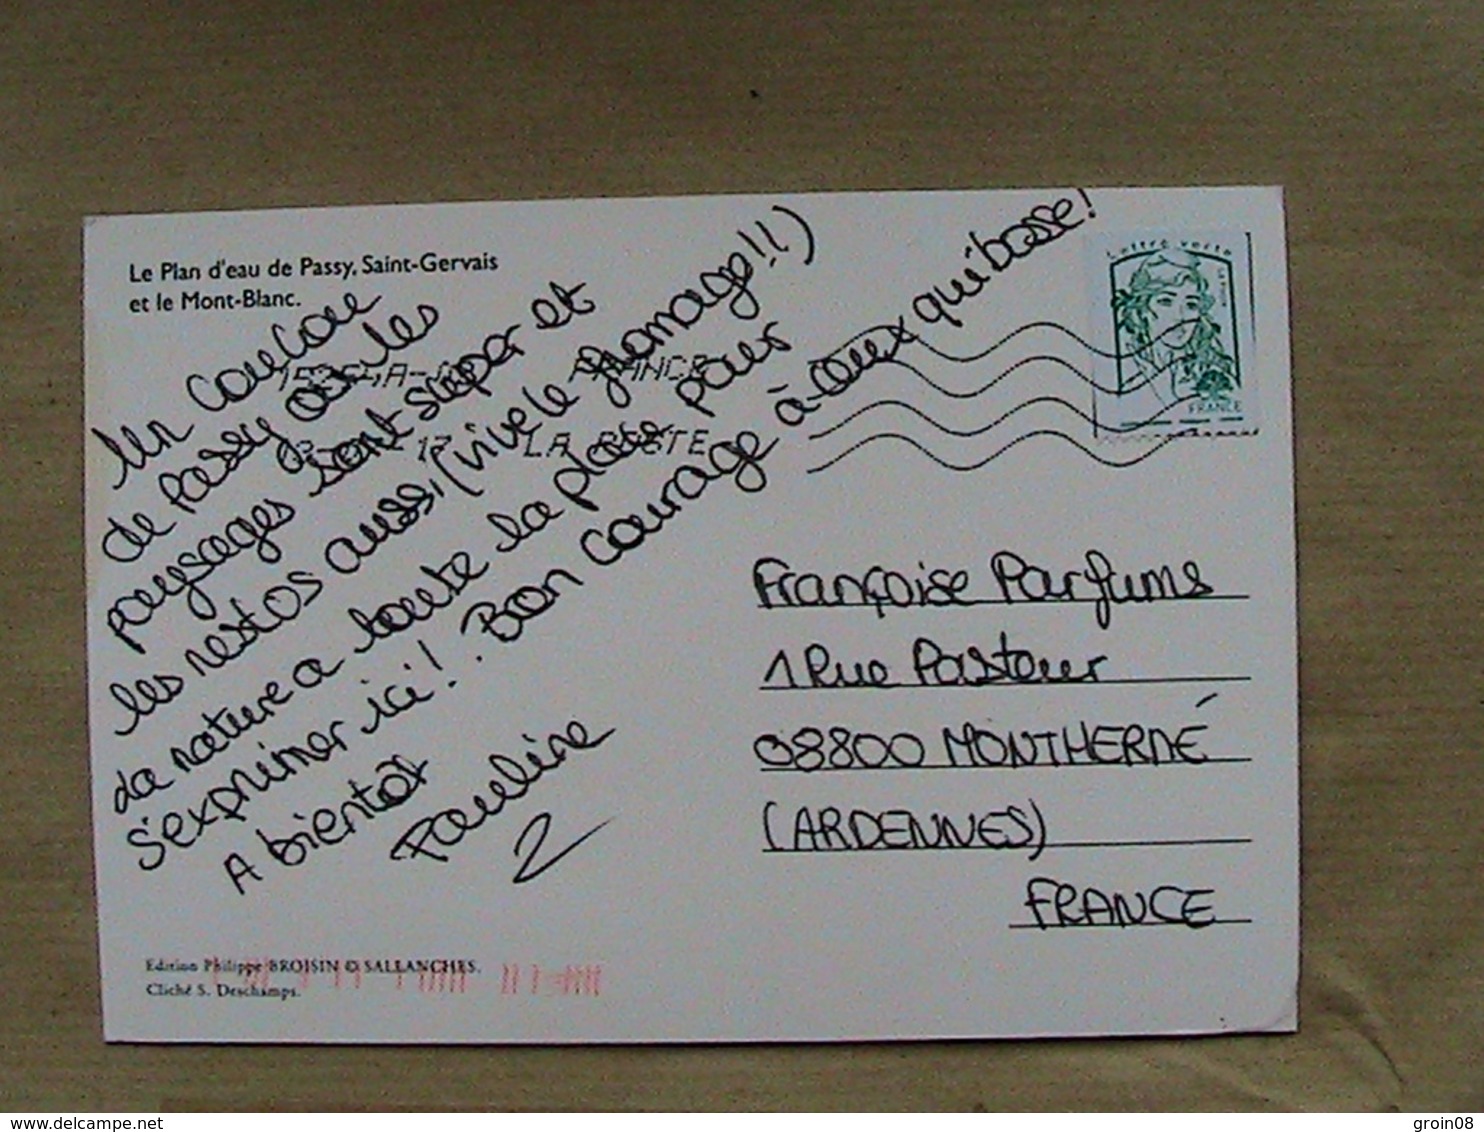 Le Plan d'eau de Passy, Saint-Gervais
et le Mont-Blanc.
Un coucou
de Passy où les
paysages sont super et
les restos aussi, (vive le fromage!!!)
La nature a toute la place pour
s'exprimer ici!. Bon courage à ceux qui bosse!
A bientot
Pauline
2
Lettre verte
LA POSTE
FRANCE
FRANCE
LA POSTE
Françoise Parfums
1 Rue Pasteur
08800 MONTHERMÉ
(ARDENNES)
FRANCE
Edition Philippe BROISIN © SALLANCHES.
Cliché S. Deschamps.
delcampe.net
groin08